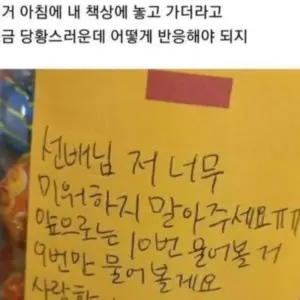 거 아침에 내 책상에 놓고 가더라고
금 당황스러운데 어떻게 반응해야 되지
선배님 저 너무
미워하지 말아주세요ㅠㅠ
앞으로는 10번 물어볼 거
9번만 물어볼게요